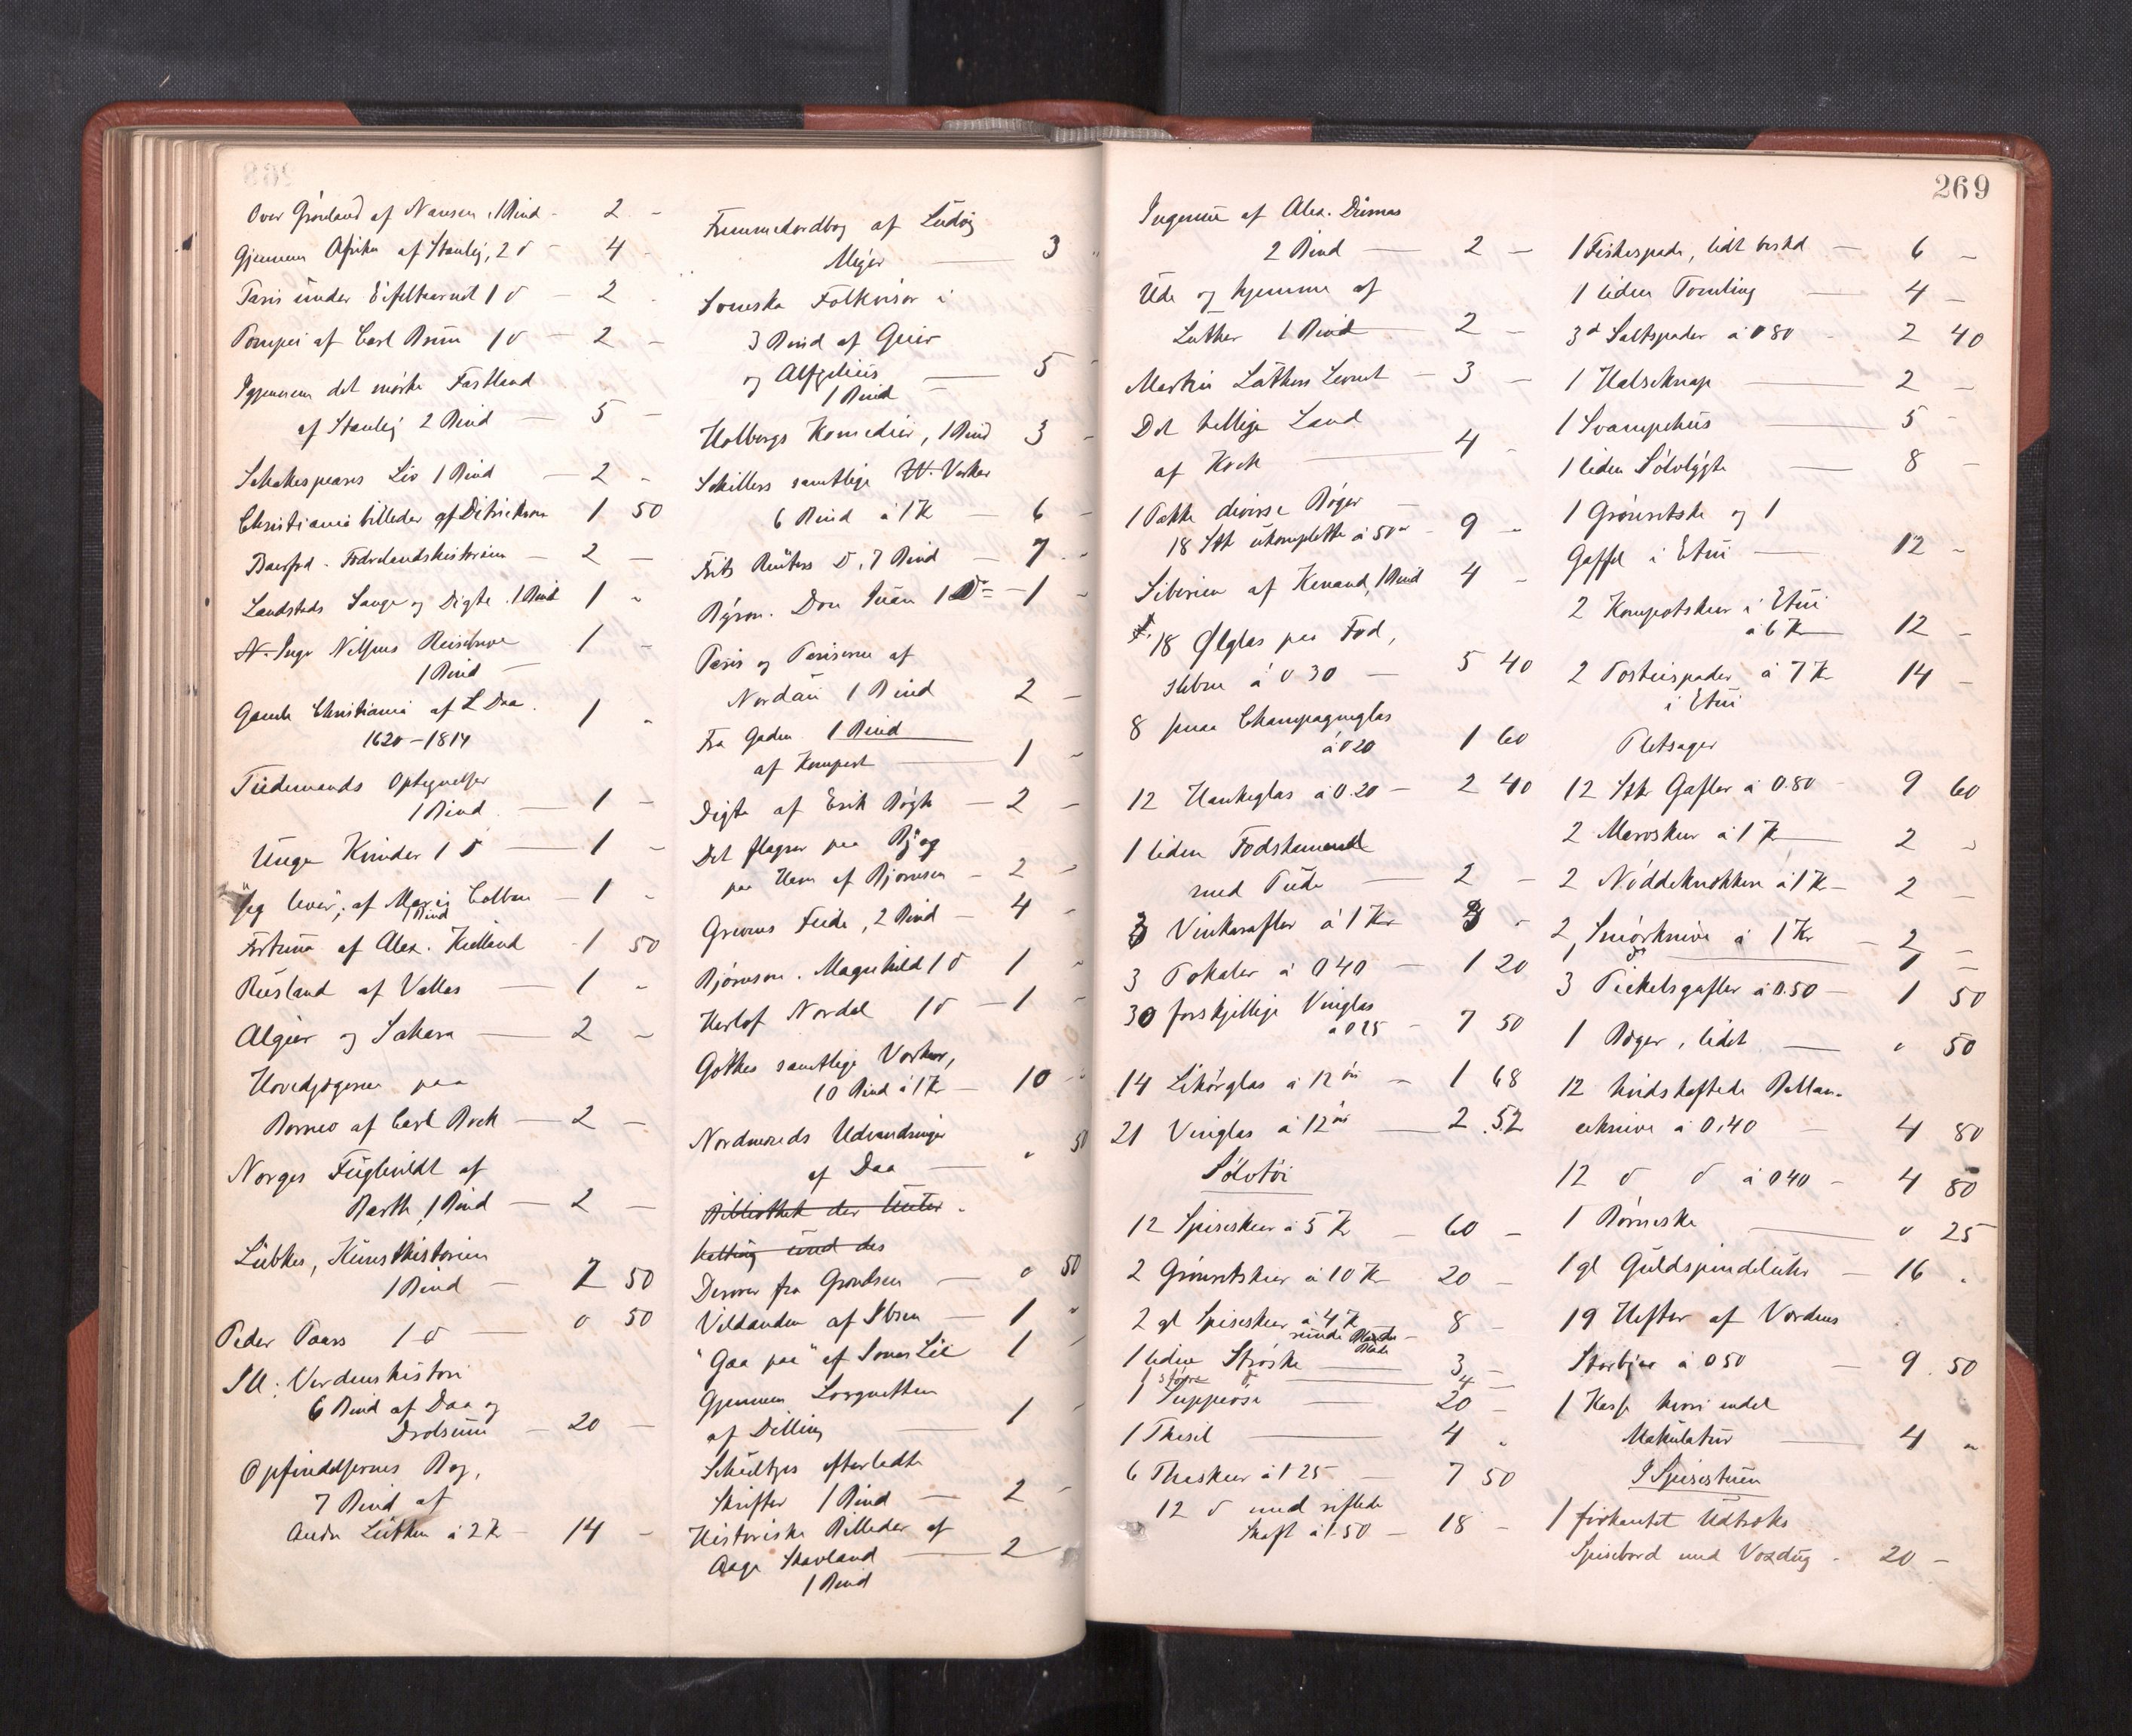 Over Grønland af Nansen, 1 Bind - 2 -
Gjennem Afrika af Stanley, 2 d - 4 -
Paris under Eifeltaarnet 1 d - 2 -
Pompei af Carl 1 d - 2 -
Igjennem det mørke Fastland
af Stanley 2 Bind - 5 -
Schakespeares Liv 1 Bind - 2 -
Christiania billeder af Ditrichson 1 50
Fædrelandshistorien - 2 -
Landstads Sange og Digte. 1 Bind 1 -
Inga
1 Bind - 1 -
Gamle Christiania af L Daa. 1 -
1620-1814
Tidemands Optegnelser
1 Bind. - 1 -
Unge Kvinder 1 d - 1 -
"Jeg lever", af Marie Colban - 1 -
1 Bind
Fortuna af Alex. Kielland - 1 50
Rusland af Vallas - 1 -
Algier og Sahara - 2 -
Hovedjægerne paa
Borneo af Carl Bock - 2 -
Norges Fuglevildt af
Barth, 1 Bind - 2 -
Lübkes, Kunsthistorien
1 Bind - 7 50
Peder Paars 1 d - 0 50
Ill: Verdenshistori
6 Bind af Daa og
Drolsum - 20 -
Opfindelsernes Bog,
7 Bind af
André Lütken à 2 Kr - 14 -
Fremmedordbog af Ludvig
Meyer - 3 "
Svenska Folkvisor i
3 Bind af Geier
og Alfzelius - 5 -
1 Bind
Holbergs Komedier, 1 Bind 3 -
Schillers samtlige W. Verker
6 Bind à 1 K - 6 -
Frits Reuters D, 7 Bind - 7 -
Byron. Don Juan 1 D - 1 -
Paris og Pariserne af
Nordau 1 Bind 2 -
Fra Gaden 1 Bind
af - 1 -
Digte af Erik Bøgh - 2 -
Det flager paa By og
paa Havn af Bjørnson - 2 -
Grevens Feide, 2 Bind - 4 -
Bjørnson. Magnhild 1 d 1 -
Herlof Nordal 1 d - 1 -
Göthes samtlige Verker,
10 Bind à 1 K - 10 -
Nordmænds Udvandringer
af Daa - " 50
Bibliothek der Unter-
haltung und des
fra - 0 50
Vildanden af Ibsen - 1 "
"Gaa paa" af Jonas Lie 1 -
Gjennem Lorgnetten
af Dilling - 1 -
Schultzes efterladte
Skrifter 1 Bind - 2 -
Historiske Billeder af
Aage Skavland - 2
1 Bind
269
Ingenue af Alex. Dumas
2 Bind - 2 -
Ude og hjemme af
Luther 1 Bind - 2 -
Martin Luthers Levnet - 3 -
Det hellige Land
af Kock - 4 -
1 Pakke diverse Bøger
18 Stk ukomplette à 50 ør - 9 -
Siberien af Kenand, 1 Bind 4 -
18 Ølglas paa Fod,
slebne à 0 30 - 5 40
8 smaa Champagneglas
à 0 20 1 60
12 Hankeglas à 0.20 - 2 40
1 liden
med Tude - 2 -
3 Vinkarafler à 1 Kr 3 -
3 Pokaler à 0 40 - 1 20
30 forskjellige Vinglas
à 0 25 - 7 50
14 Likørglas à 12 ør - 1 68
21 Vinglas à 12 ør - 2.52
Sølvtøi
12 Spiseskeer à 5 K - 60 -
2 Grønsetskeer à 10 Kr - 20 -
2 gl Spiseskeer à 4 K - 8 -
runde Blade
1 liden Strøske - 3 -
1 større d - 4 -
1 Suppeøse - 20 -
1 Thesil - 4 -
6 Theskeer à 1 25 - 7 50
12 d med riflede
Skaft à 1.50 - 18 -
1 Fiskespade, lidt besk d - 6 -
1 liden - 4 -
3 d Saltspader à 0 80 - 2 40
1 Halseknap - 2 -
1 Svampehus - 5 -
1 liden Sølvlygte - 8 -
1 Grønsetske og 1
Gaffel i Etui - 12 -
2 Kompotskeer i Etui
à 6 K 12 -
2 Posteispader à 7 K 14 -
i Etui
Pletsager
12 Stk Gafler à 0.80 - 9 60
2 Marvskeer à 1 K 2 -
2 Nøddeknækkere à 1 K - 2 -
2 Smørknive à 1 Kr - 2 -
1 d - 1 -
3 Pickelsgafler à 0.50 - 1 50
1 Bæger, lidet - " 50
12 hvidskaftede Dallan-
erknive à 0,40 - 4 80
12 d d à 0 40 - 4 80
1 Børneske - 0 25
1 gl Guldspindeluhr - 16 -
19 Hefter af Verdens
Storbyer à 0 50 - 9.50
1 Kasse hvori endel
Makulatur - 4 "
I Spisestuen
1 firkantet Udtræks
Spisebord med Voxdug - 20 -